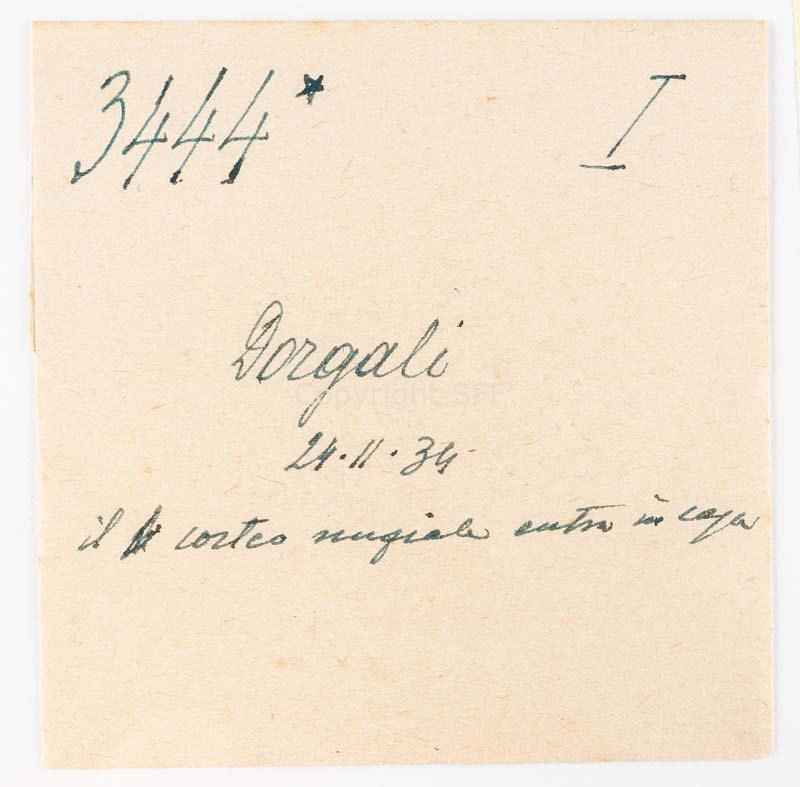 3444* I
Dorgali
Copyright SFF
24.11.34
il corteo nuziale entra in casa